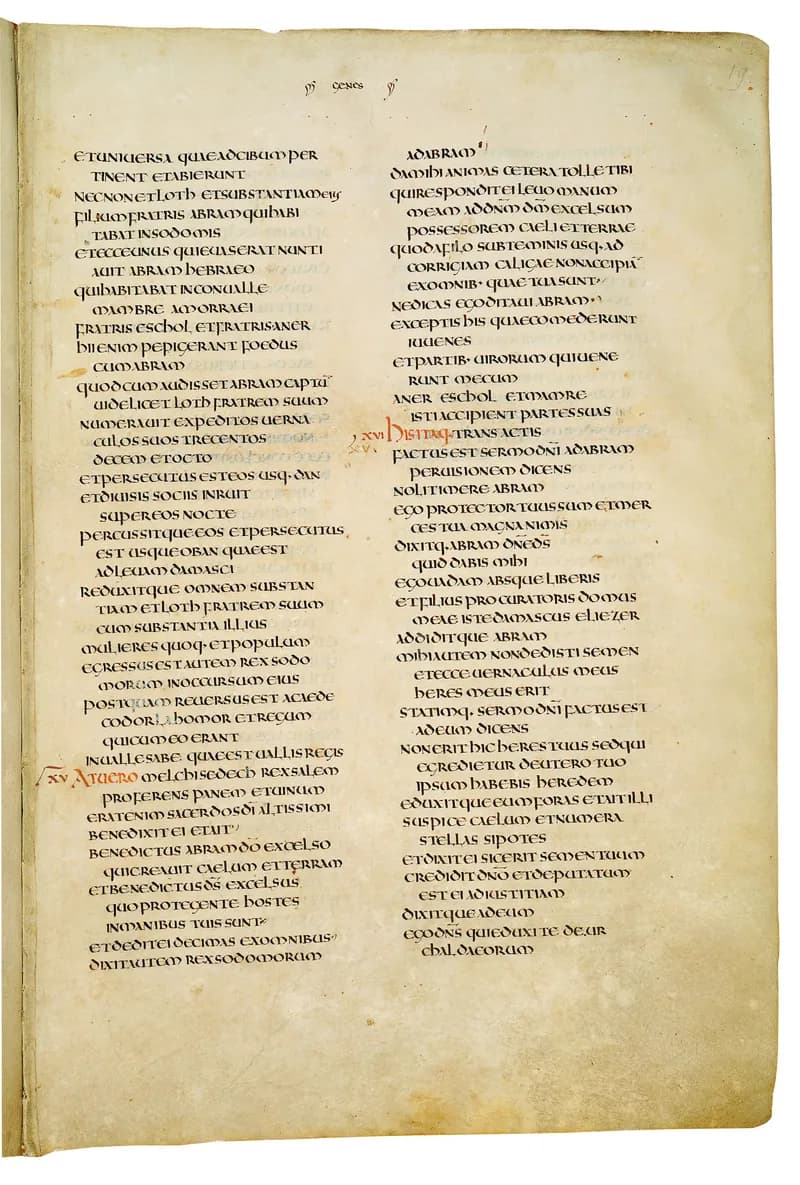 GENES
19
ETUNIUERSA QUAEADCIBUMPER
TINENT ETABIERUNT
NECNONETLOTH ETSUBSTANTIAMEIUS
FILIUMFRATRIS ABRAMQUIHABI
TABATINSODOMIS
ETECCEUNUS QUIEUASERATNUNTI
AUIT ABRAM HEBRAEO
QUIHABITABAT INCONUALLE
MAMBRE AMORRAEI
FRATRIS ESCHOL ETFRATRISANER
HIIENIM PEPIGERANT FOEDUS
CUMABRAM
QUODCUMAUDISSETABRAM CAPTŪ
UIDELICET LOTH FRATREM SUUM
NUMERAUIT EXPEDITOS UERNA
CULOS SUOS TRECENTOS
DECEM ETOCTO
ETPERSECUTUS ESTEOS USQ· DAN
ETDIUISIS SOCIIS INRUIT
SUPEREOS NOCTE
PERCUSSITQUEEOS ETPERSECUTUS
EST USQUEOBAN QUAEEST
ADLEUAM DAMASCI
REDUXITQUE OMNEM SUBSTAN
TIAM ETLOTH FRATREM SUUM
CUM SUBSTANTIA ILLIUS
MULIERES QUOQ· ETPOPULUM
EGRESSUSESTAUTEM REXSODO
MORUM INOCCURSUM EIUS
POSTQUAM REUERSUSEST ACAEDE
CODORLAHOMOR ETREGUM
QUICUMEOERANT
INUALLESABE QUAEESTUALLISREGIS
XV ATUERO MELCHISEDECH REXSALEM
PROFERENS PANEM ETUINUM
ERATENIM SACERDOSDĪ ALTISSIMI
BENEDIXITEI ETAIT
BENEDICTUS ABRAM DŌ EXCELSO
QUICREAUIT CAELUM ETTERRAM
ETBENEDICTUSDS̄ EXCELSUS
QUOPROTEGENTE HOSTES
INMANIBUS TUIS SUNT
ETDEDITEI DECIMAS EXOMNIBUS
DIXITAUTEM REXSODOMORUM
ADABRAM
DAMIHIANIMAS CETERATOLLETIBI
QUIRESPONDITEI LEUOMANUM
MEAM ADDN̄M DM̄ EXCELSUM
POSSESSOREM CAELI ETTERRAE
QUODAFILO SUBTEMINIS USQ· AD
CORRIGIAM CALIGAE NONACCIPIĀ
EXOMNIB· QUAETUASUNT
NEDICAS EGODITAUI ABRAM
EXCEPTISHIS QUAECOMEDERUNT
IUUENES
ETPARTIB· UIRORUM QUIUENE
RUNT MECUM
ANER ESCHOL ETMAMRE
ISTIACCIPIENT PARTESSUAS
XVI HISITAQ· TRANSACTIS
XV
FACTUSEST SERMODN̄I ADABRAM
PERUISIONEM DICENS
NOLITIMERE ABRAM
EGO PROTECTORTUUSSUM ETMER
CESTUA MAGNANIMIS
DIXITQ· ABRAM DN̄EDS̄
QUID DABIS MIHI
EGOUADAM ABSQUE LIBERIS
ETFILIUS PROCURATORIS DOMUS
MEAE ISTEDAMASCUS ELIEZER
ADDIDITQUE ABRAM
MIHIAUTEM NONDEDISTI SEMEN
ETECCE UERNACULUS MEUS
HERES MEUS ERIT
STATIMQ· SERMODN̄I FACTUSEST
ADEUM DICENS
NONERITHIC HERESTUUS SEDQUI
EGREDIETUR DEUTERO TUO
IPSUM HABEBIS HEREDEM
EDUXITQUEEUMFORAS ETAITILLI
SUSPICE CAELUM ETNUMERA
STELLAS SIPOTES
ETDIXITEI SICERIT SEMENTUUM
CREDIDIT DN̄O ETDEPUTATUM
ESTEI ADIUSTITIAM
DIXITQUEADEUM
EGODN̄S QUIEDUXITE DEUR
CHALDAEORUM